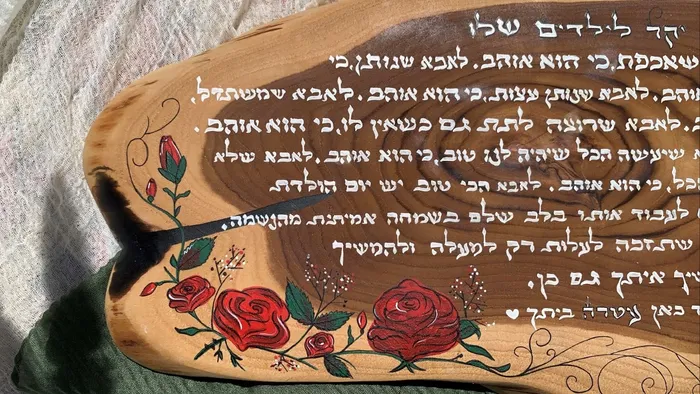 יקר לילדים שלו
שאכפת, כי הוא אוהב. לאבא שנותן, כי
אוהב. לאבא שנותן עצות, כי הוא אוהב. לאבא שמשתדל,
. לאבא שרוצה לתת גם כשאין לו, כי הוא אוהב.
שיעשה הכל שיהיה לנו טוב, כי הוא אוהב. לאבא שלא
הכל, כי הוא אוהב. לאבא הכי טוב יש יום הולדת
לעבוד אותו בלב שלם בשמחה אמיתית מהנשמה.
שתזכה לעלות רק למעלה ולהמשיך
איתך גם כן.
כאן עטרה ביתך